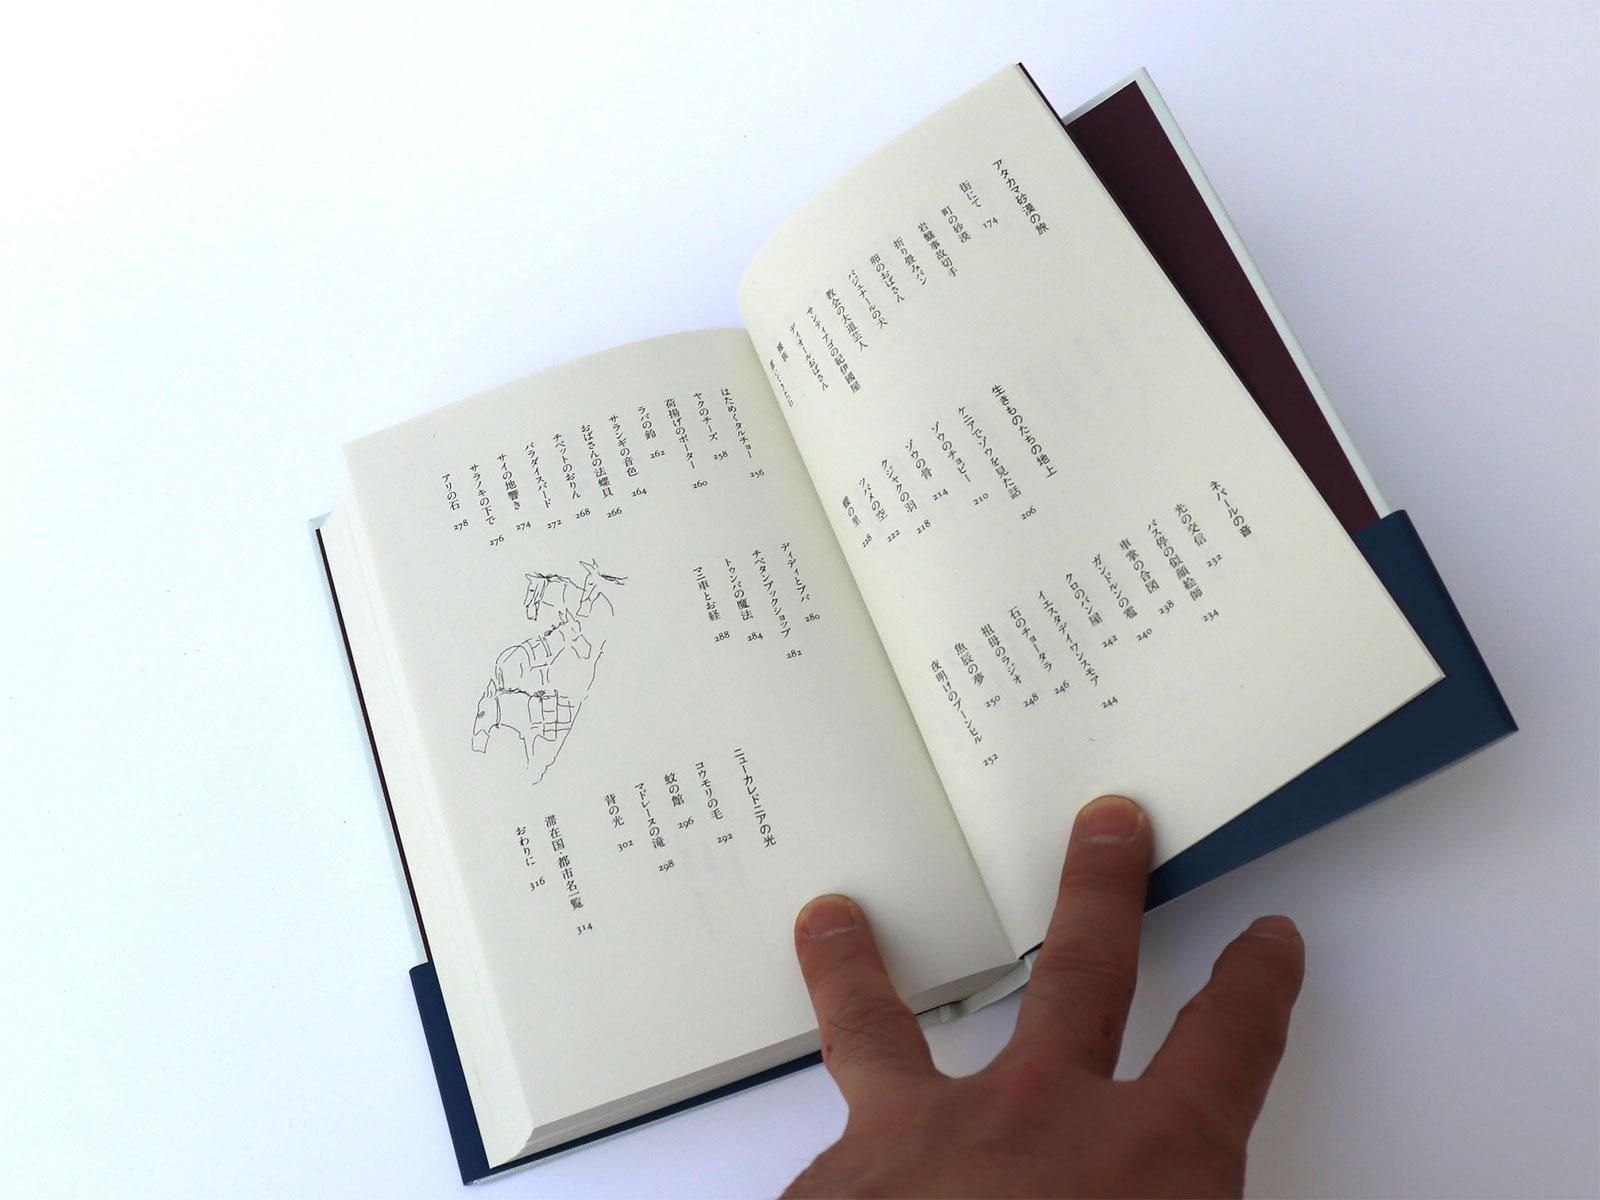 アタカマ砂漠の旅
街にて 174
町の砂漠
岩盤事故切手
折り畳みパン
卵のおばさん
バジェナールの犬
教会の大道芸人
サンティアゴの紀伊國屋
ディオールおばさん
生きものたちの地上
ケニアでゾウを見た話 206
ゾウのチョビー 210
ゾウの骨 214
クジャクの羽 218
ツバメの空 222
蝶の里 228
ネパールの音
光の交信 232
バス停の似顔絵師 234
車掌の合図 238
ガンドルンの雹 240
クロのパン屋 242
イエスタデイワンスモア 244
石のチョータラ 246
祖母のラジオ 248
魚辰の夢 250
夜明けのアーンヒル 252
はためくタルチョー 256
ヤクのチーズ 258
荷揚げのポーター 260
ラバの鈴 262
サランギの音色 264
おばさんの法螺貝 266
チベットのおりん 268
パラダイスバード 272
サイの地響き 274
サラノキの下で 276
アリの石 278
ディディとブバ 280
チベタンブックショップ 282
トゥンバの魔法 284
マニ車とお経 288
ニューカレドニアの光
コウモリの毛 292
蚊の館 296
マドレーヌの滝 298
背の光 302
滞在国・都市名一覧 314
おわりに 316